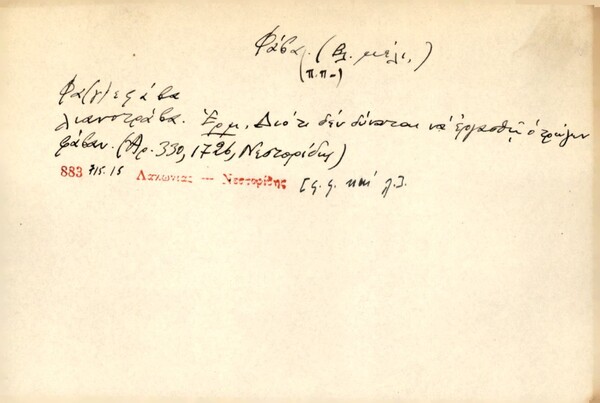 Φάβα. (Βλ. μέλι,)
(π.π-)
Φα(γ)ε φάβα
λιανοτράβα. Ἑρμ. Διότι δέν δύναται νά ἐργασθῇ ὁ τρώγων
φάβαν. (Αρ. 330, 1726, Νεστορίδης)
883 715.15 Λακωνίας — Νεστορίδης [ς. ς. καί λ.].